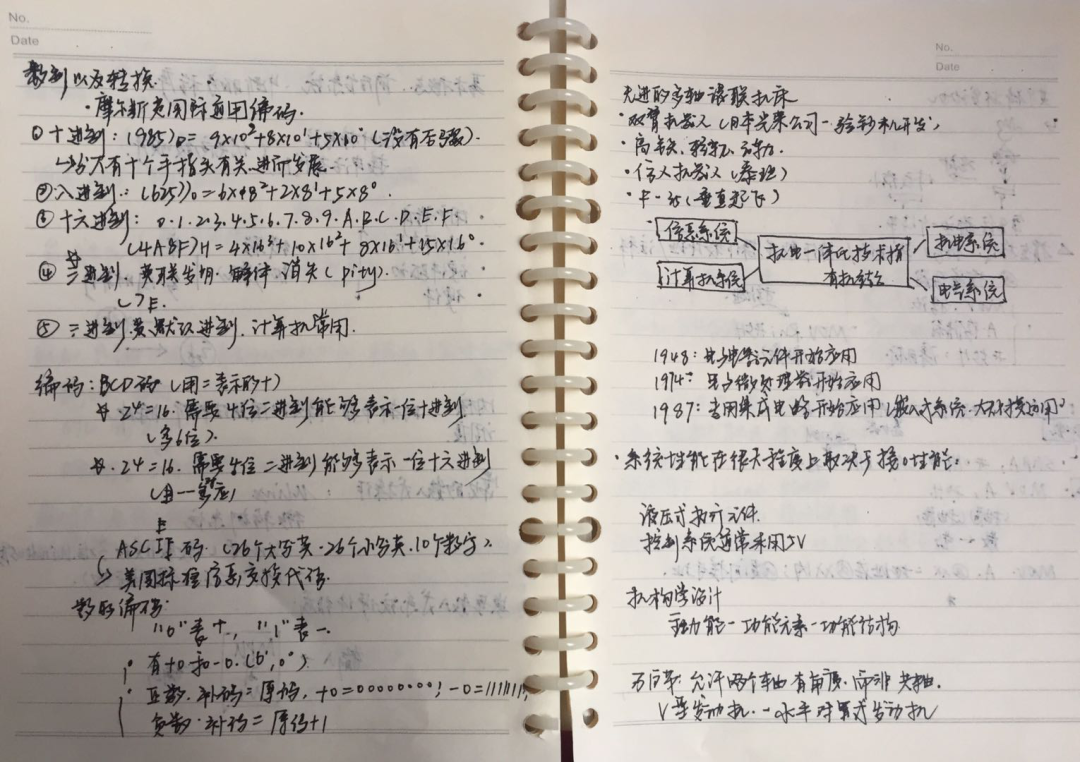 No.
Date
数制以及转换.
·摩尔斯英国际通用编码.
①十进制: (985)D = 9×10²+8×10¹+5×10⁰ (没有百数).
↳与人有十个手指头有关.进而发展.
②八进制: (625)D = 6×8²+2×8¹+5×8⁰.
③十六进制: 0.1.2.3.4.5.6.7.8.9.A.B.C.D.E.F
(4ABF)H = 4×16³+10×16²+8×16¹+15×16⁰.
④三进制. 苏联发明. 解体 消失 (pity).
⑤二进制. 莫默认进制. 计算机常用.
编码: BCD码 (用二表示的十)
24=16. 需要4位二进制能够表示一位十进制
(多6位).
24=16. 需要4位二进制能够表示一位十六进制
(一一对应)
ASCII码 (26个大写英.26个小写英.10个数字)
↳美国标准信息交换代码
数的编码:
"0"表+, "1"表-.
有+0和-0.
正数.补码=原码, +0=00000000; -0=1111111;
负数.补码=原码+1
No.
Date
先进的多轴谋联机床
·双臂机器人 (日本光荣公司-验钞机开发)
·高铁.
·仿人机器人 (泰坦)
·F-35 (垂直起飞)
信息系统
计算机系统
机电一体化技术指有机结合
机电系统
电学系统
1948: 开始应用
1974: 电子微处理器开始应用
1987: 专用集成电路开始应用 (嵌入式系统.大规模运用)
·系统性能在很大程度上取决于接口性能
液压式执行元件
控制系统通常采用5V
机构学设计
主功能-功能元素-功能结构
万向节: 允许两个轴有角度. 而非共轴.
V型发动机. -水平对置式发动机